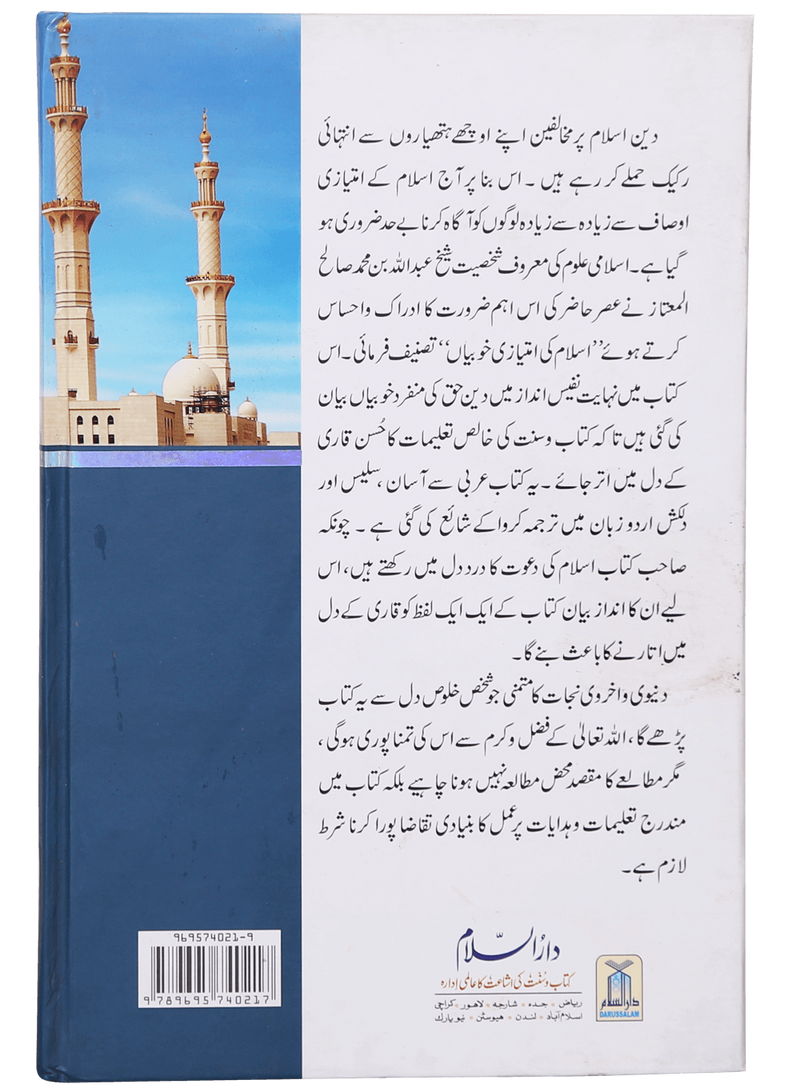 دین اسلام پر مخالفین اپنے اوچھے ہتھیاروں سے انتہائی
رکیک حملے کر رہے ہیں ۔ اس بنا پر آج اسلام کے امتیازی
اوصاف سے زیادہ سے زیادہ لوگوں کو آگاہ کرنا بے حد ضروری ہو
گیا ہے۔ اسلامی علوم کی معروف شخصیت شیخ عبداللہ بن محمد صالح
المعتاز نے عصر حاضر کی اس اہم ضرورت کا ادراک و احساس
کرتے ہوئے ’’اسلام کی امتیازی خوبیاں‘‘ تصنیف فرمائی۔ اس
کتاب میں نہایت نفیس انداز میں دین حق کی منفرد خوبیاں بیان
کی گئی ہیں تاکہ کتاب و سنت کی خالص تعلیمات کا حُسن قاری
کے دل میں اتر جائے ۔ یہ کتاب عربی سے آسان ، سلیس اور
دلکش اردو زبان میں ترجمہ کروا کے شائع کی گئی ہے ۔ چونکہ
صاحب کتاب اسلام کی دعوت کا درد دل میں رکھتے ہیں، اس
لیے ان کا انداز بیان کتاب کے ایک ایک لفظ کو قاری کے دل
میں اتارنے کا باعث بنے گا ۔
دنیوی و اخروی نجات کا متمنی جو شخص خلوص دل سے یہ کتاب
پڑھے گا ، اللہ تعالیٰ کے فضل و کرم سے اس کی تمنا پوری ہوگی ،
مگر مطالعے کا مقصد محض مطالعہ نہیں ہونا چاہیے بلکہ کتاب میں
مندرج تعلیمات و ہدایات پر عمل کا بنیادی تقاضا پورا کرنا شرط
لازم ہے ۔
969574021-9
9 789695 740217
دارُالسّلام
کتاب و سُنّت کی اشاعت کا عالمی ادارہ
ریاض * جدہ * شارجہ * لاھور * کراچی
اسلام آباد * لندن * ھیوسٹن * نیو یارک
دارالسلام
DARUSSALAM